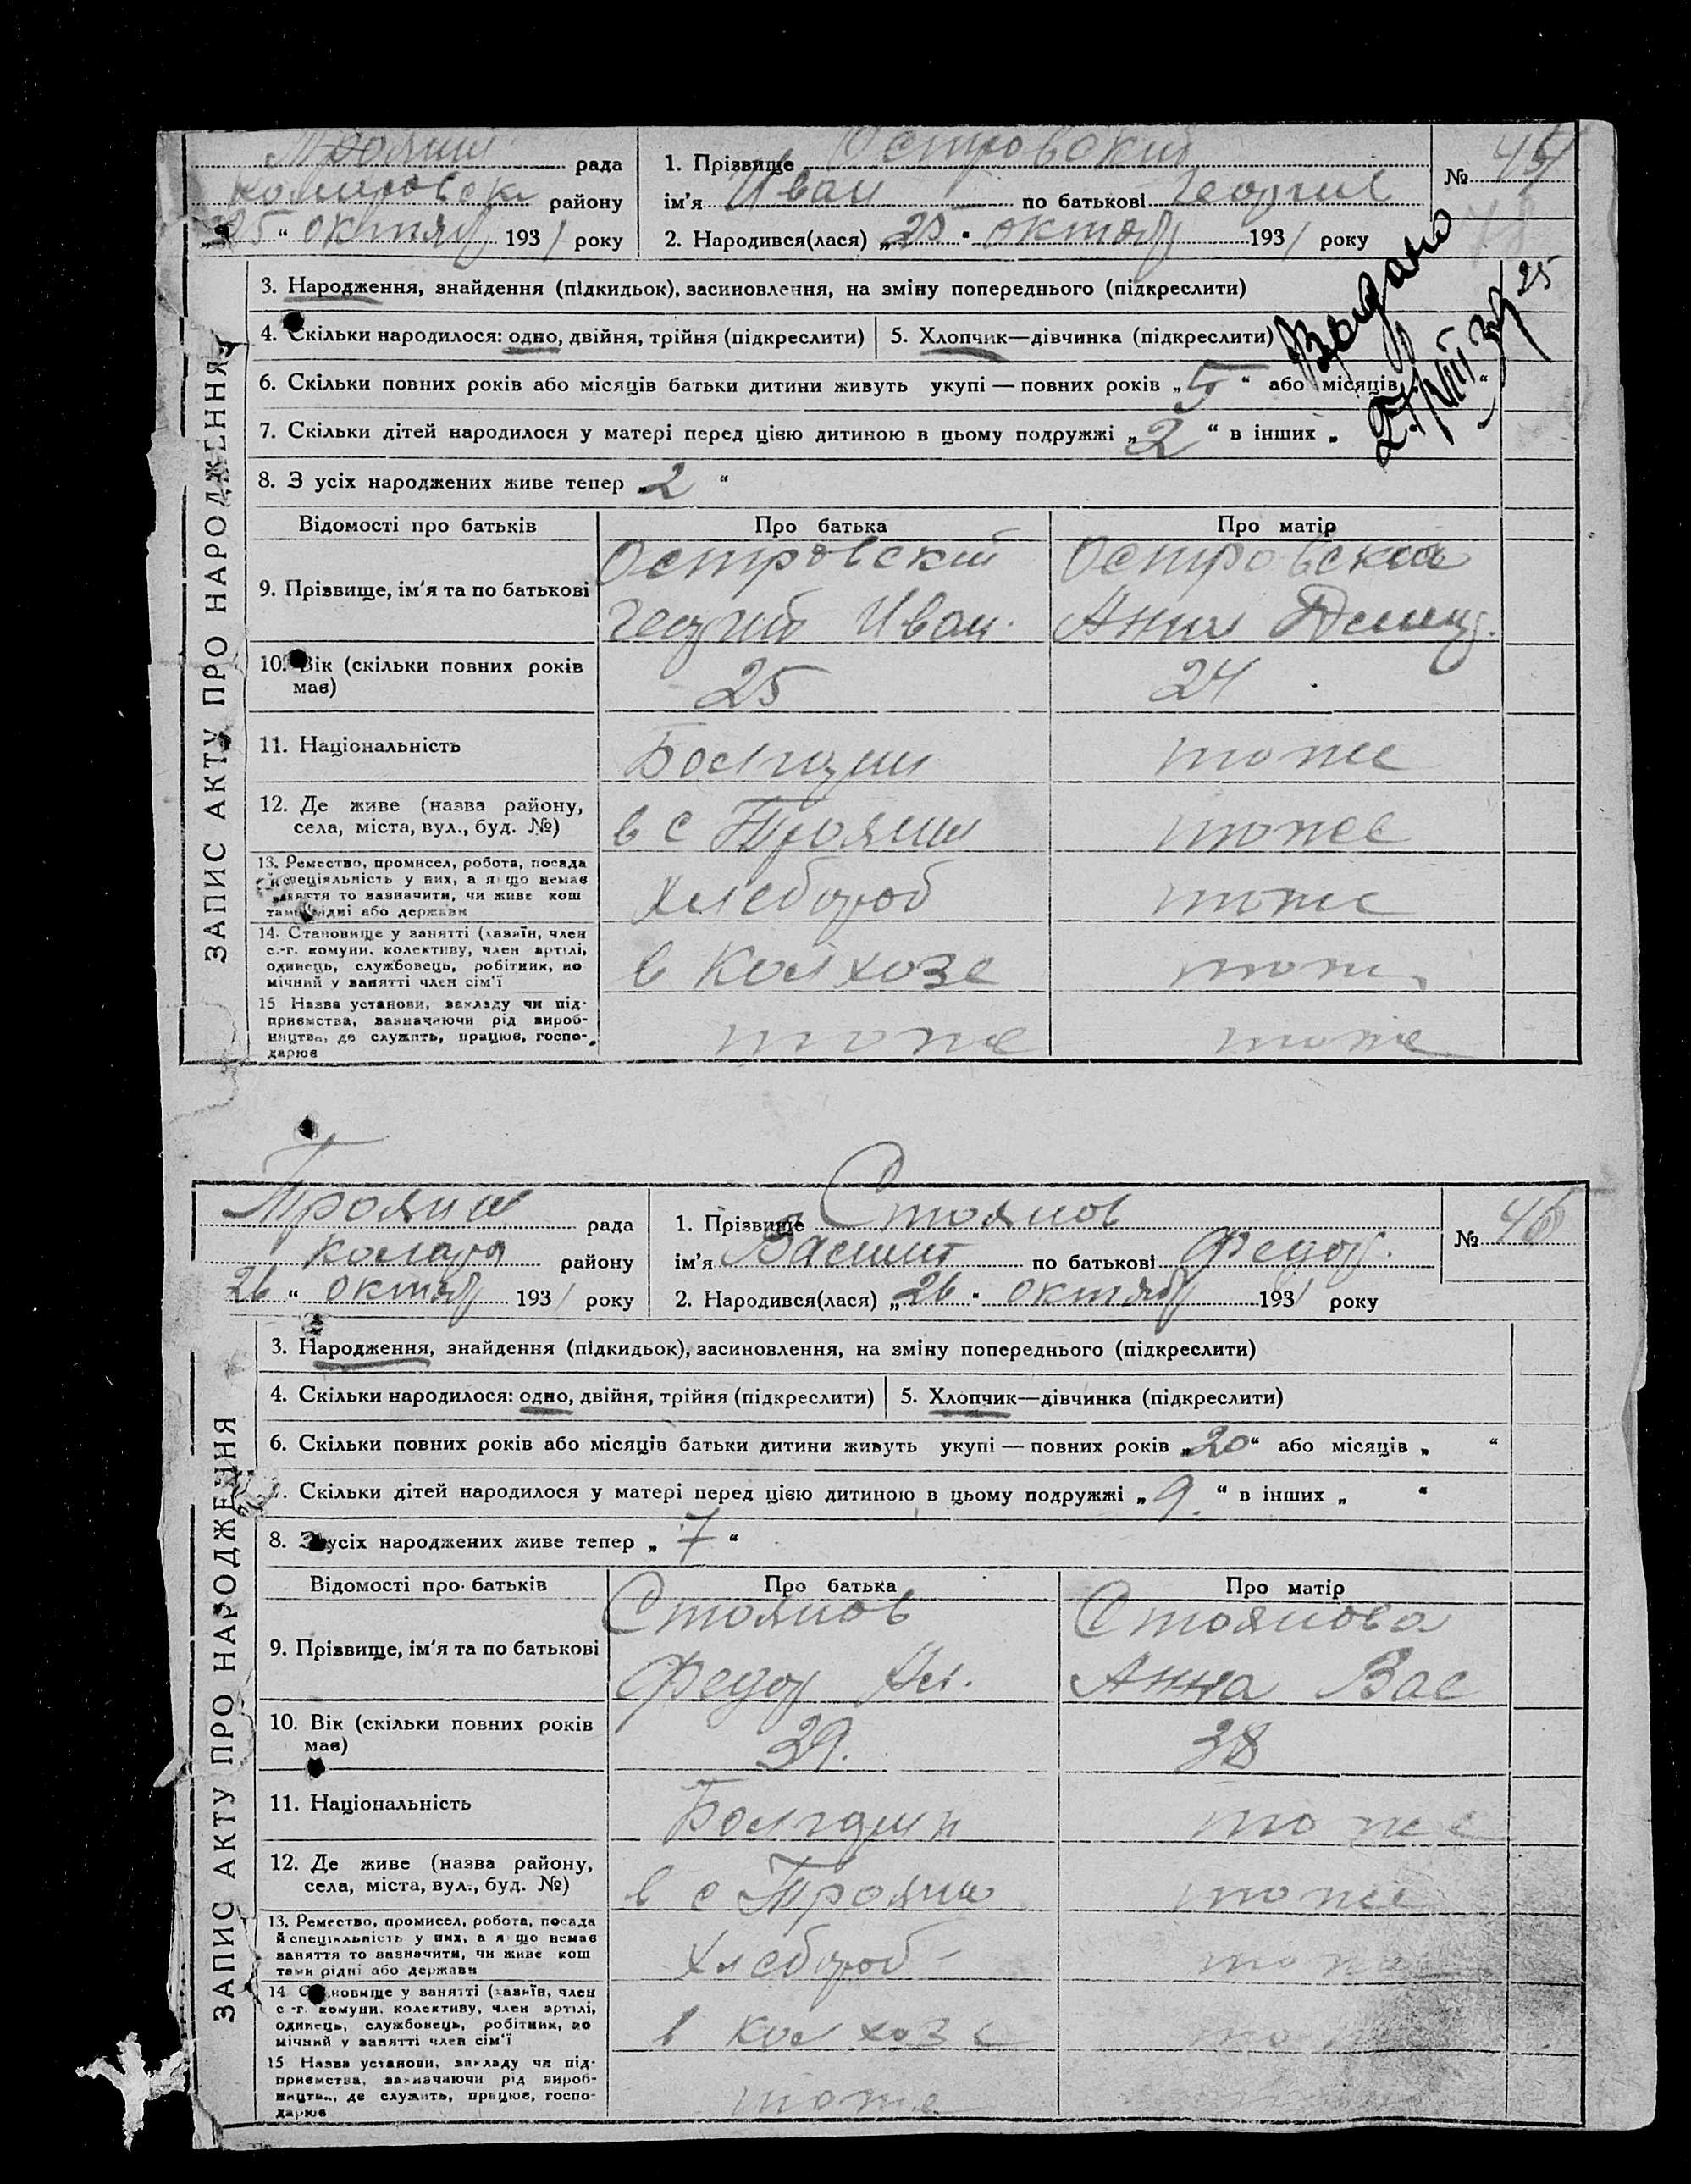 Троян рада
району
25 " октяб 1931 року
1. Прізвище Островский
ім'я Иван по батькові Георгие
2. Народився(лася) „25 " октяб 1931 року
№ 45
Выдано
25
3. Народження, знайдення (підкидьок), засиновлення, на зміну попереднього (підкреслити)
4. Скільки народилося: одно, двійня, трійня (підкреслити) 5. Хлопчик—дівчинка (підкреслити)
6. Скільки повних років або місяців батьки дитини живуть укупі — повних років „5 " або місяців „ "
7. Скільки дітей народилося у матері перед цією дитиною в цьому подружжі „2 " в інших „
8. З усіх народжених живе тепер „2 "
Відомості про батьків Про батька Про матір
9. Прізвище, ім'я та по батькові
Островский Островская
Георгий Иван. Анна
10. Вік (скільки повних років
має)
25 24
11. Національність
Болгарин тоже
12. Де живе (назва району,
села, міста, вул., буд. №)
в с Троян тоже
13. Ремество, промисел, робота, посада
й спеціяльність у них, а якщо немає
заняття то зазначити, чи живе кош
тами рідні або держави
Хлебороб тоже
14. Становище у занятті (хазяїн, член
с.-г. комуни, колективу, член артілі,
одинець, службовець, робітник, по
мічний у занятті член сім'ї
в колхозе тоже
15 Назва установи, закладу чи під-
приємства, зазначаючи рід вироб-
ництва, де служить, працює, госпо-
дарює
тоже тоже
ЗАПИС АКТУ ПРО НАРОДЖЕННЯ
Троян рада
району
26 " октяб 1931 року
1. Прізвище Стоянов
ім'я Василий по батькові Федор.
2. Народився(лася) „26 " октяб 1931 року
№ 46
3. Народження, знайдення (підкидьок), засиновлення, на зміну попереднього (підкреслити)
4. Скільки народилося: одно, двійня, трійня (підкреслити) 5. Хлопчик—дівчинка (підкреслити)
6. Скільки повних років або місяців батьки дитини живуть укупі — повних років „20 " або місяців „ "
7. Скільки дітей народилося у матері перед цією дитиною в цьому подружжі „9. " в інших „ "
8. З усіх народжених живе тепер „ 7 "
Відомості про батьків Про батька Про матір
9. Прізвище, ім'я та по батькові
Стоянов Стоянова
Федор Анна Вас
10. Вік (скільки повних років
має)
39. 38
11. Національність
Болгарин тоже
12. Де живе (назва району,
села, міста, вул., буд. №)
в с Троян тоже
13. Ремество, промисел, робота, посада
й спеціяльність у них, а якщо немає
заняття то зазначити, чи живе кош
тами рідні або держави
Хлебороб тоже
14 Становище у занятті (хазяїн, член
с.-г. комуни, колективу, член артілі,
одинець, службовець, робітник, по
мічний у занятті член сім'ї
в колхозе тоже
15 Назва установи, закладу чи під-
приємства, зазначаючи рід вироб-
ництва, де служить, працює, госпо-
дарює
тоже
ЗАПИС АКТУ ПРО НАРОДЖЕННЯ